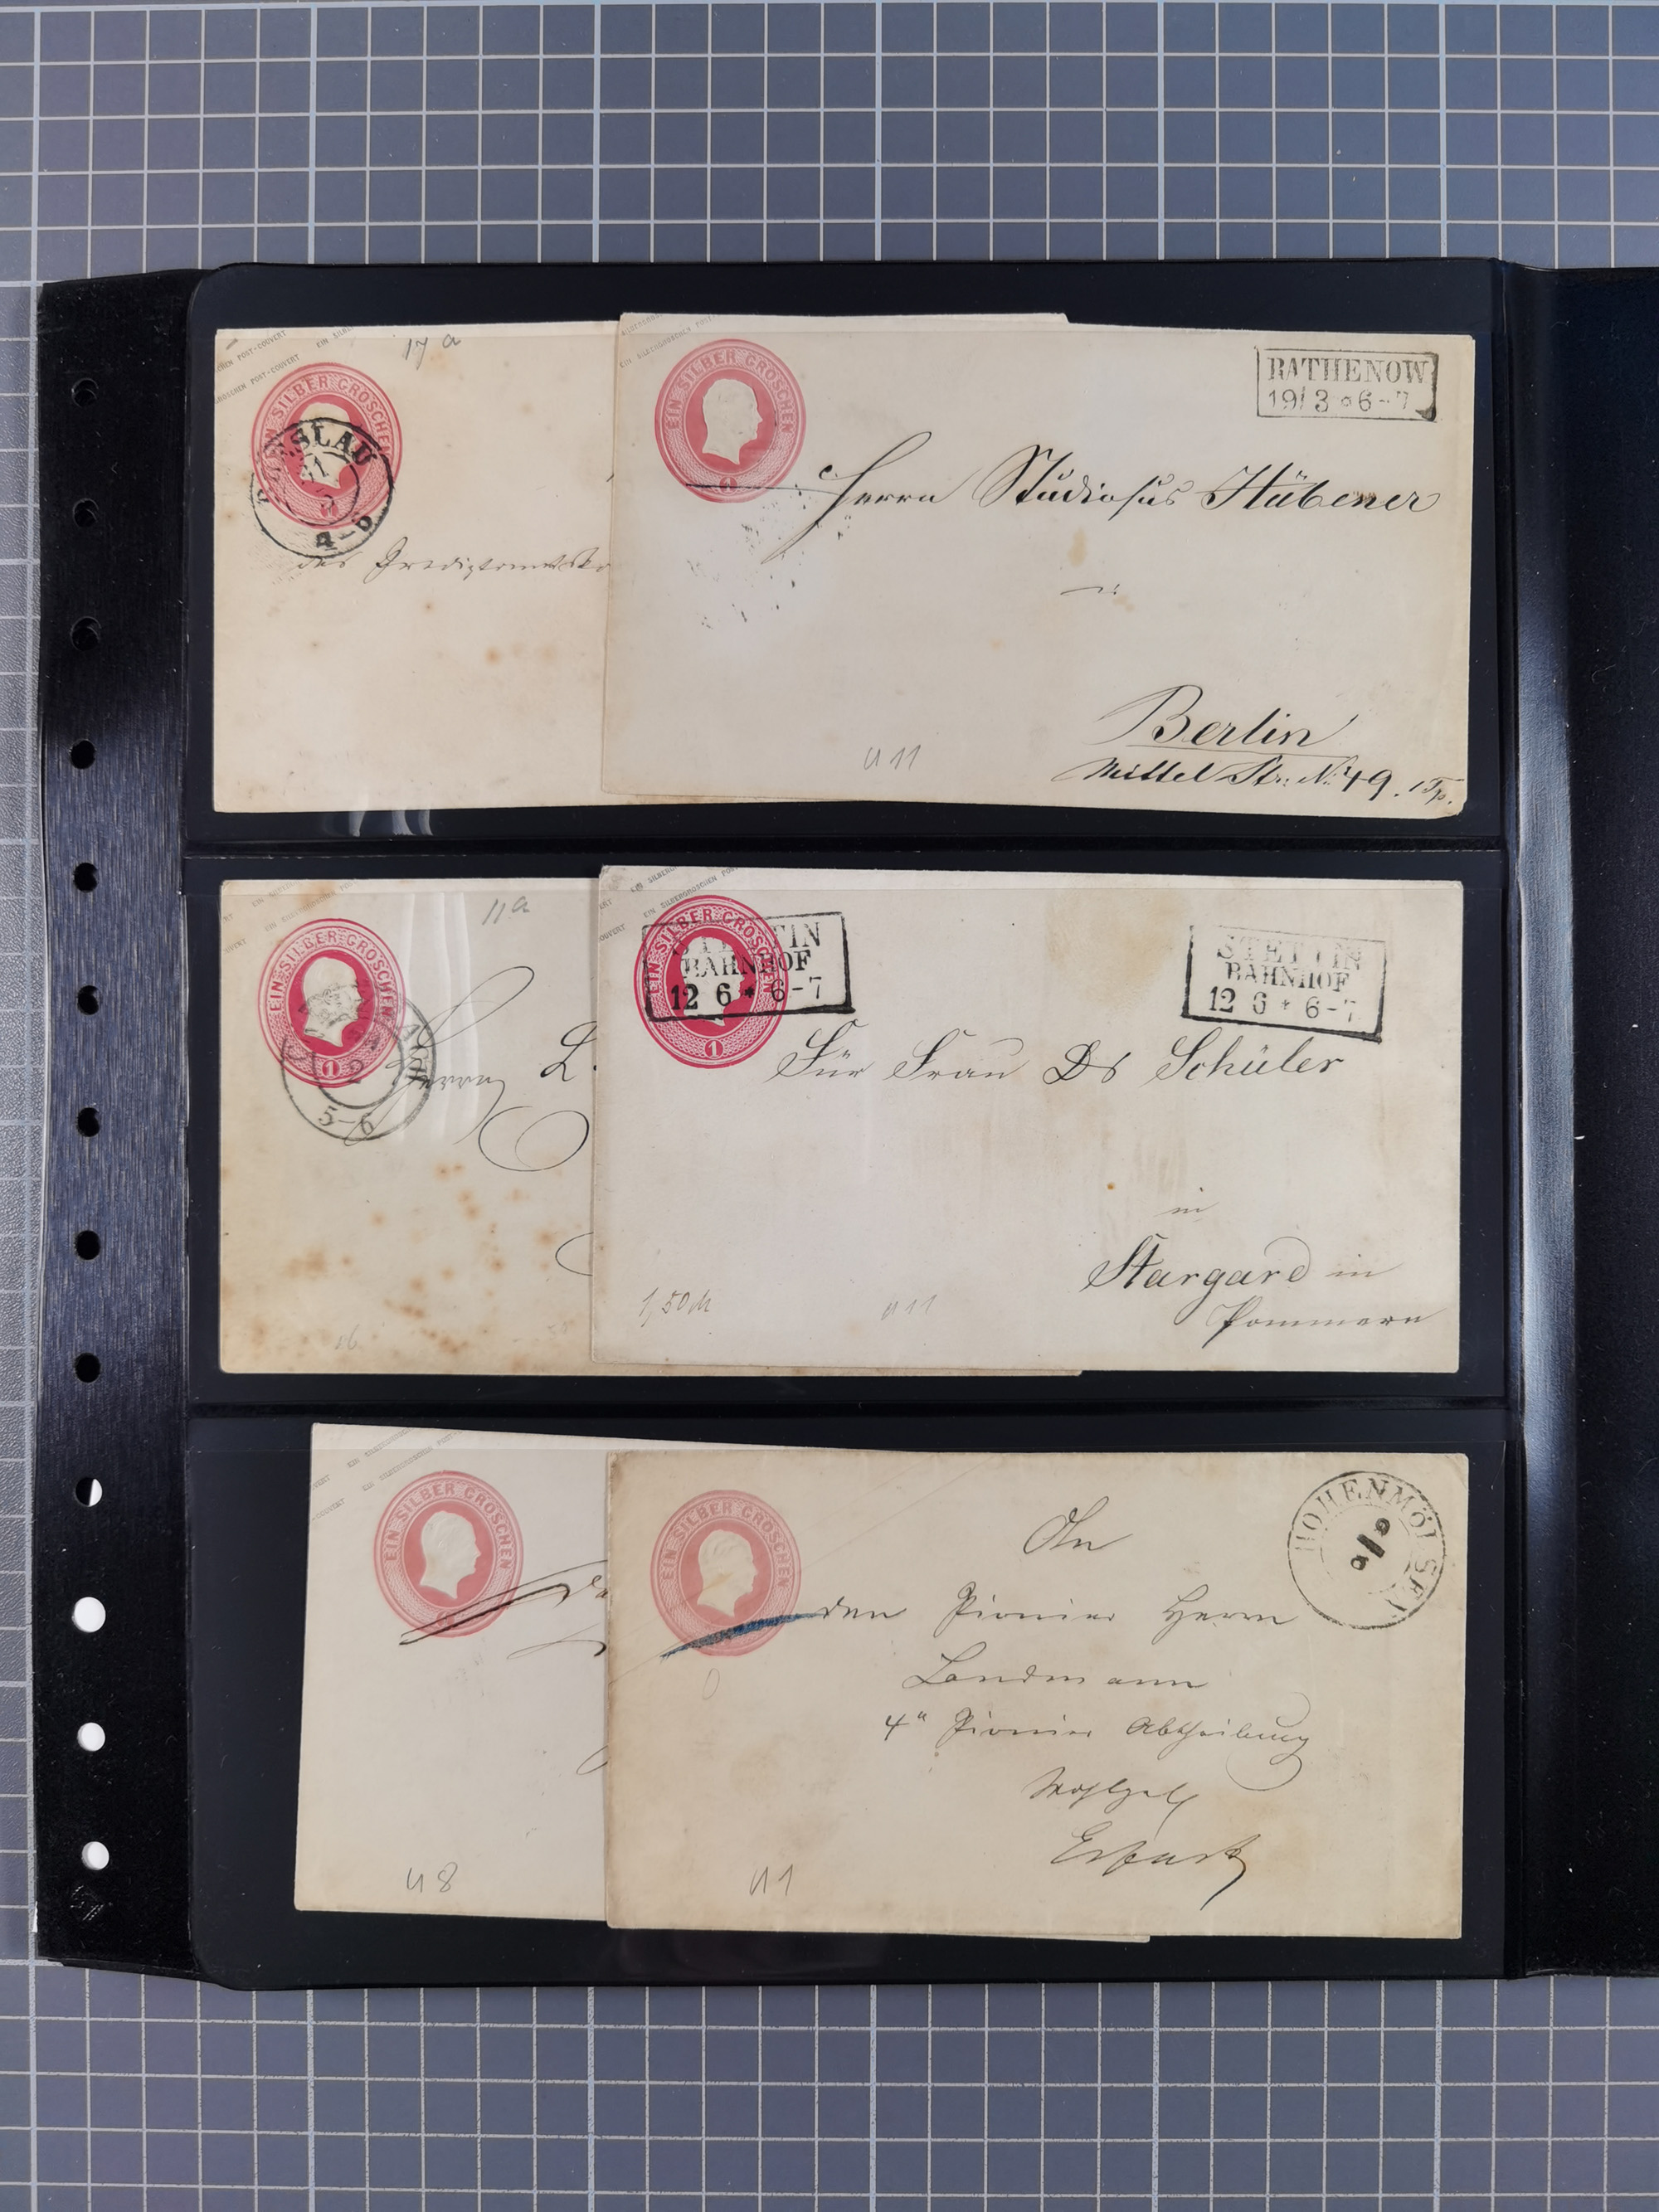 17 a
SCHEN POST-COUVERT
EIN SILB
GROSCHEN POST-COUVERT
EIN SILBER GROSCHEN
SLAU
31
4-5
des
EIN SILBERGROSCHEN POST
EIN SILBER GROSCHEN
1
RATHENOW
19/3 * 6-7
Herrn Studiosus Hübener
in
Berlin
Mittel Str: No 49. 1 Tp.
U 11
11a
EIN SILBER GROSCHEN
1
2
5-6
Herrn L.
16
EIN SILBERGROSCHEN POST
COUVERT
EIN SILBER GROSCHEN
1
STETTIN
BAHNHOF
12 6 * 6-7
STETTIN
BAHNHOF
12 6 * 6-7
Für Frau Dr Schüler
in
Stargard in
Pommern
1,50 M
U 11
EIN SILBERGROSCHEN POST
EIN SILBER GROSCHEN
U 8
EIN SILBER GROSCHEN
HOHENMÖLSEN
9/9
An
den Pionier Herrn
Landmann
4te Pionier Abtheilung
Wohlgeb
Erfurt
U 1